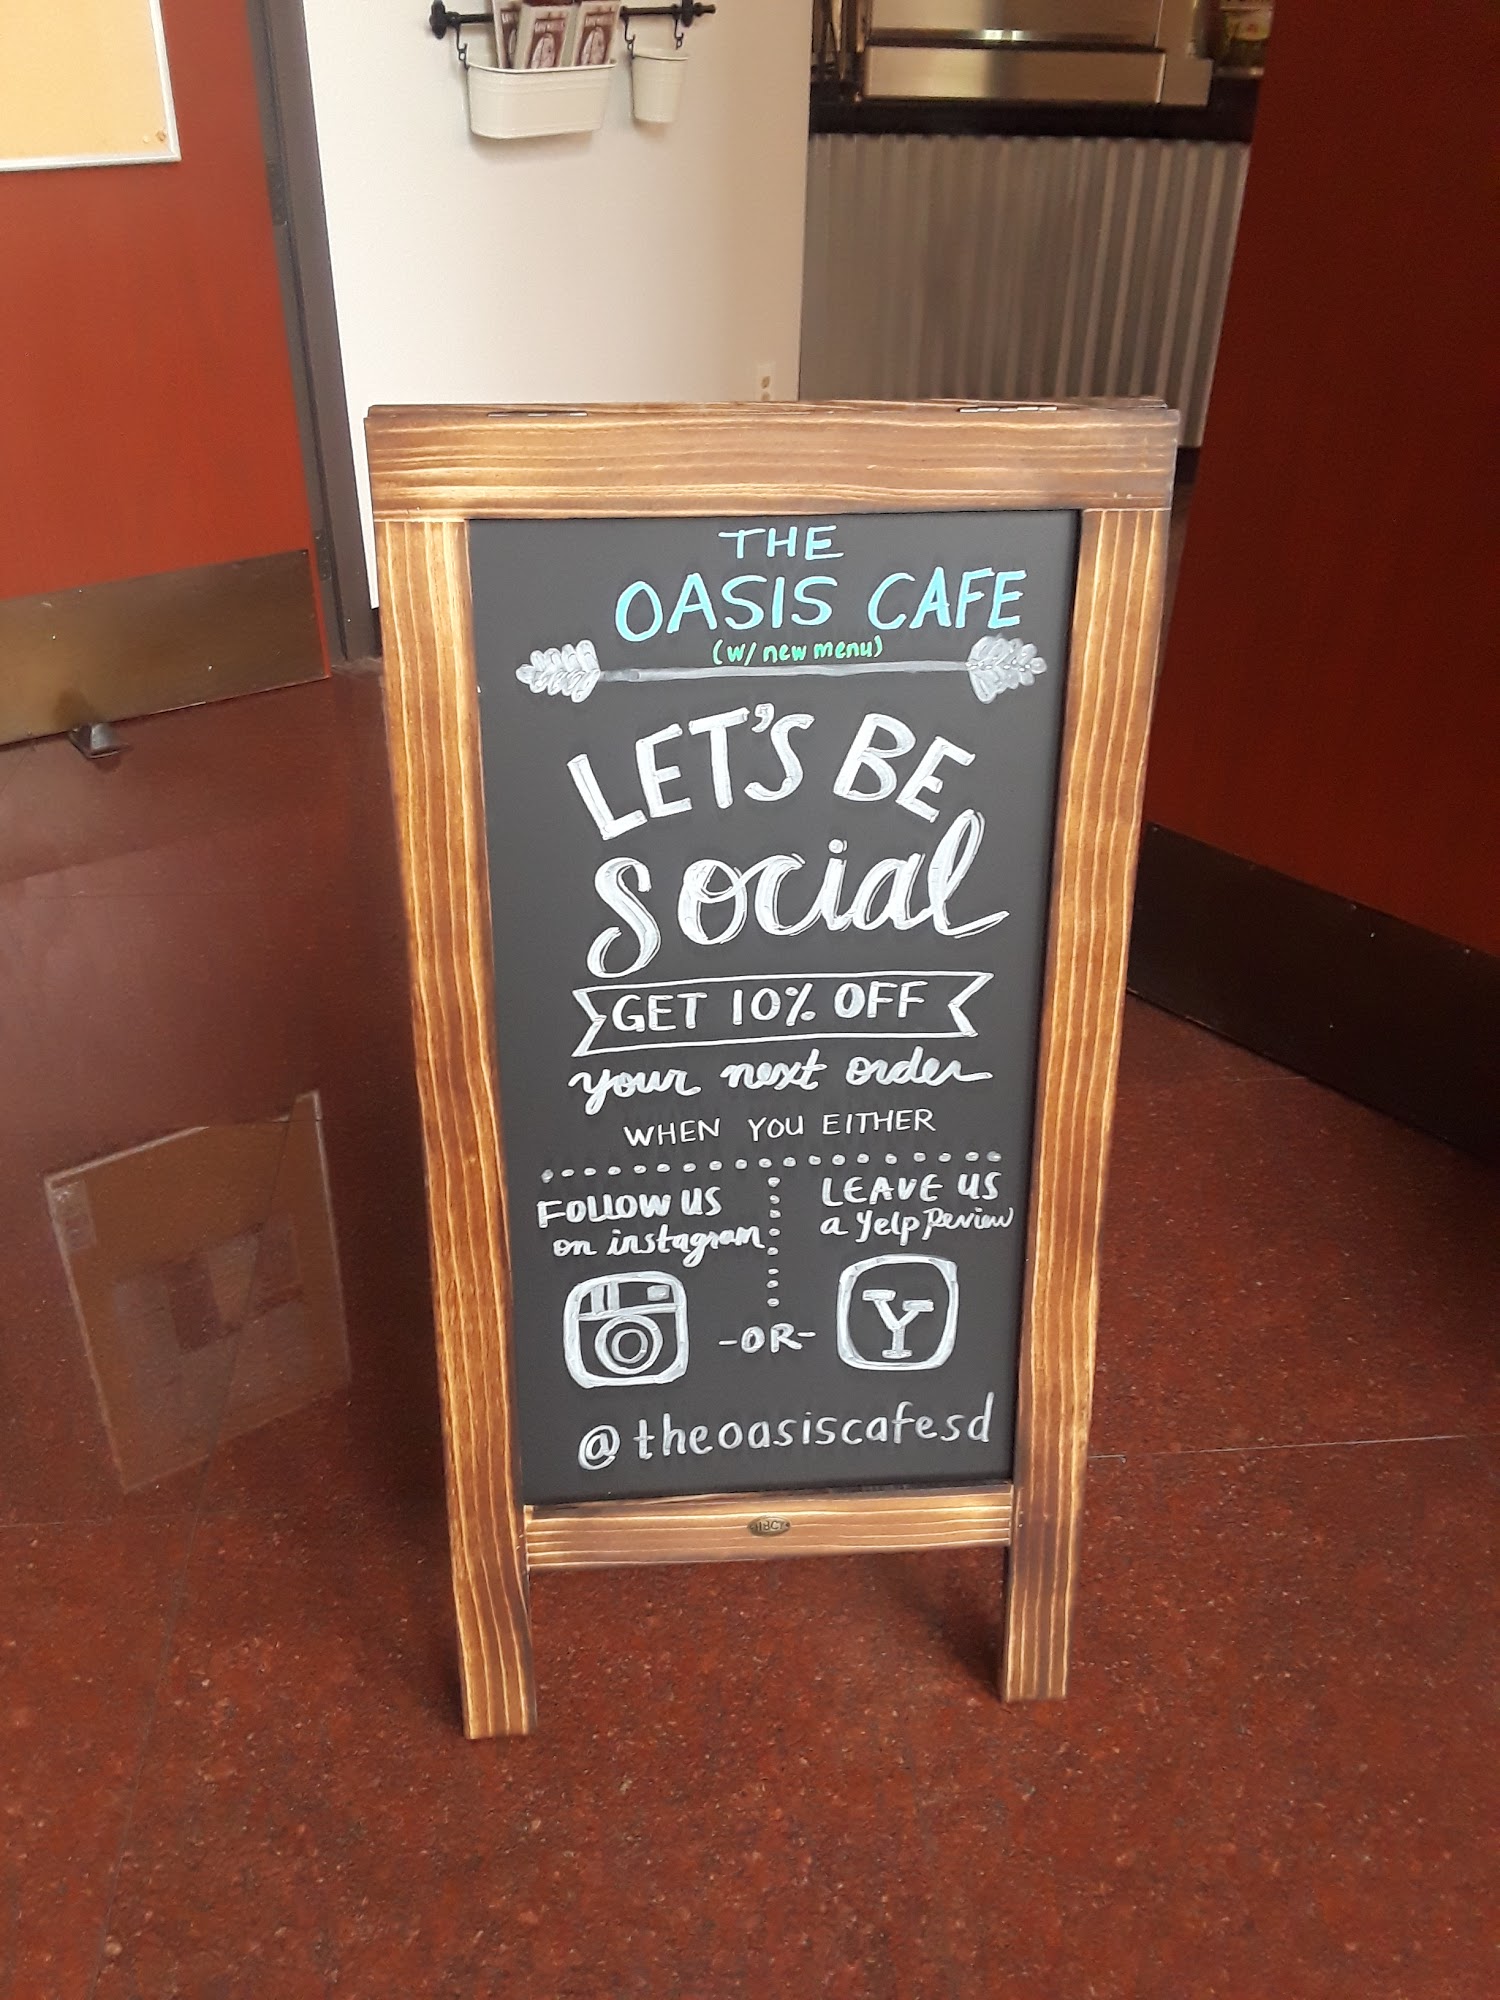 THE
OASIS CAFE
(w/ new menu)
LET'S BE
social
GET 10% OFF
your next order
WHEN YOU EITHER
FOLLOW US
on instagram
LEAVE US
a Yelp Review
-OR-
Y
@theoasiscafesd